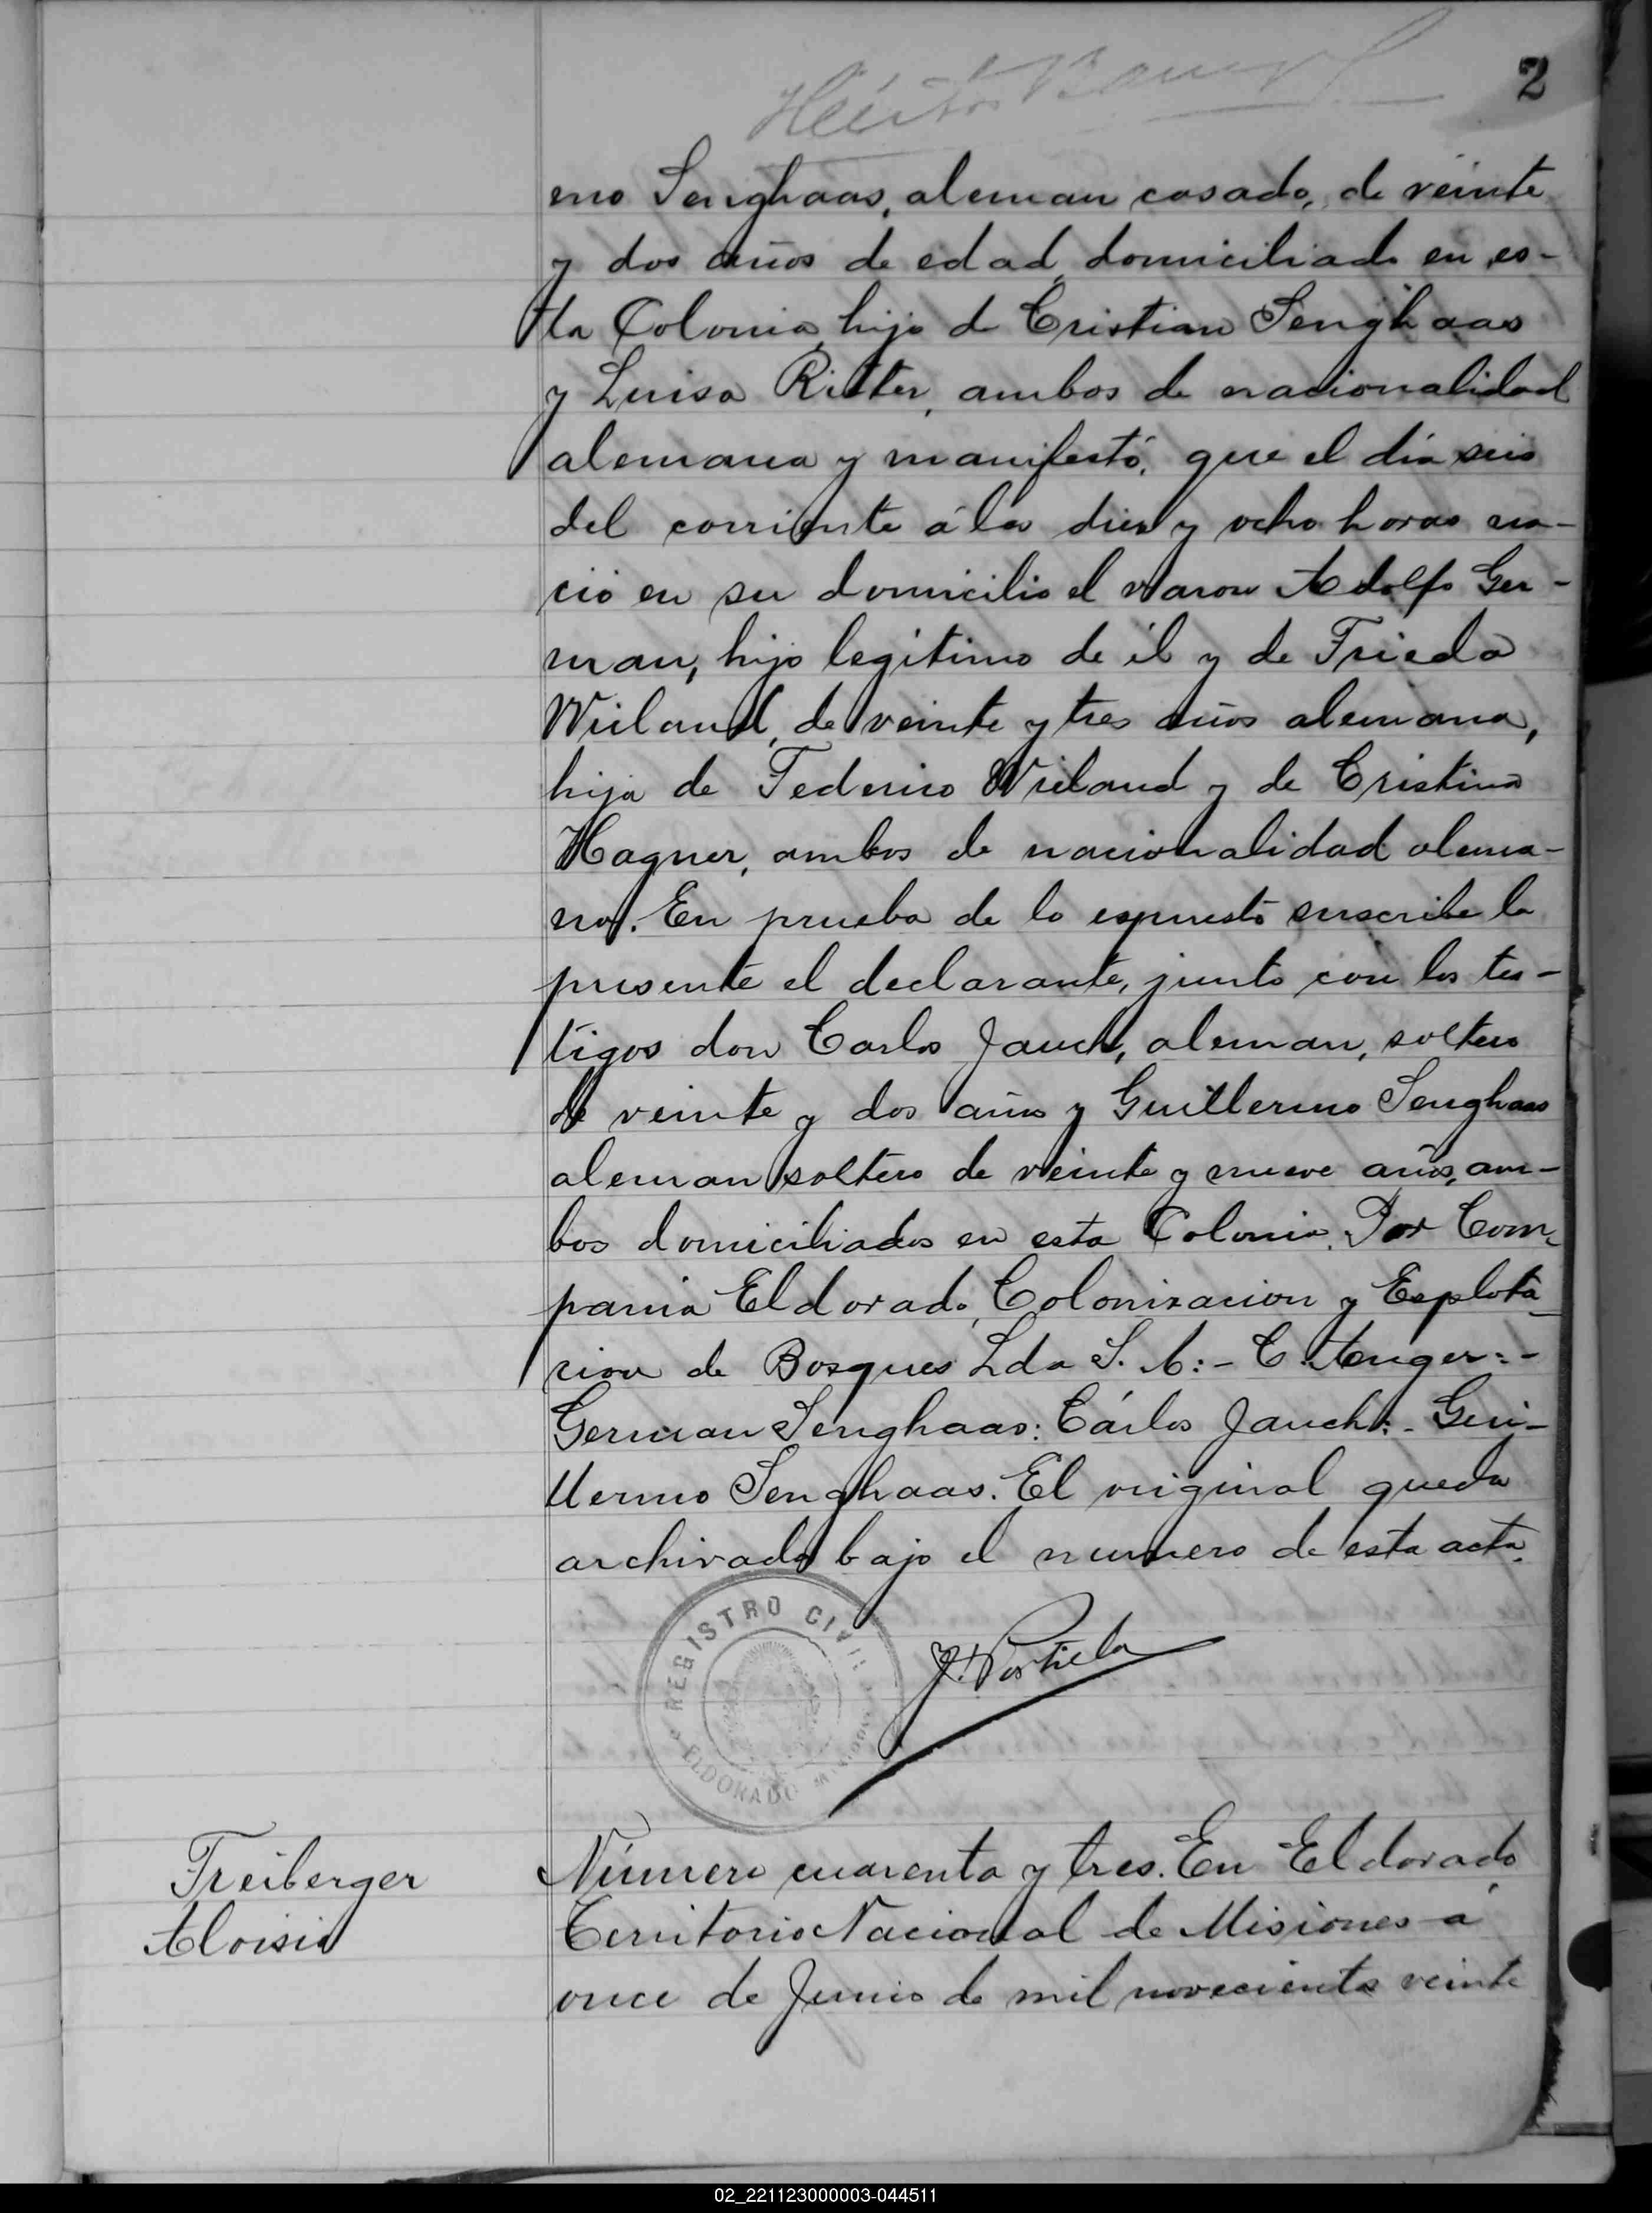 2
eno Senghaas, aleman casado, de veinte
y dos años de edad, domiciliado en es-
ta Colonia, hijo de Cristian Senghaas
y Luisa Ritter, ambos de nacionalidad
alemana y manifestó, que el día seis
del corriente á las diez y ocho horas na-
ció en su domicilio el varon Adolfo Ger-
man, hijo legitimo de él y de Frieda
Wieland, de veinte y tres años alemana,
hija de Federico Wieland y de Cristina
Hagner, ambos de nacionalidad alema-
na. En prueba de lo espuesto suscribe la
presente el declarante, junto con los tes-
tigos don Carlos Jauch, aleman, soltero
de veinte y dos años y Guillermo Senghaas
aleman soltero de veinte y nueve años, am-
bos domiciliados en esta Colonia. Por Com-
pania Eldorado, Colonizacion y Esplota-
cion de Bosques Lda S. A:- C. Anger:-
German Senghaas: Cárlos Jauch:- Gui-
llermo Senghaas. El original queda
archivado bajo el numero de esta acta.
REGISTRO CIVIL
ELDORADO
J. Portiela
Treiberger
Aloisia
Número cuarenta y tres. En Eldorado,
Territorio Nacional de Misiones á
once de Junio de mil novecientos veinte
02_221123000003-044511